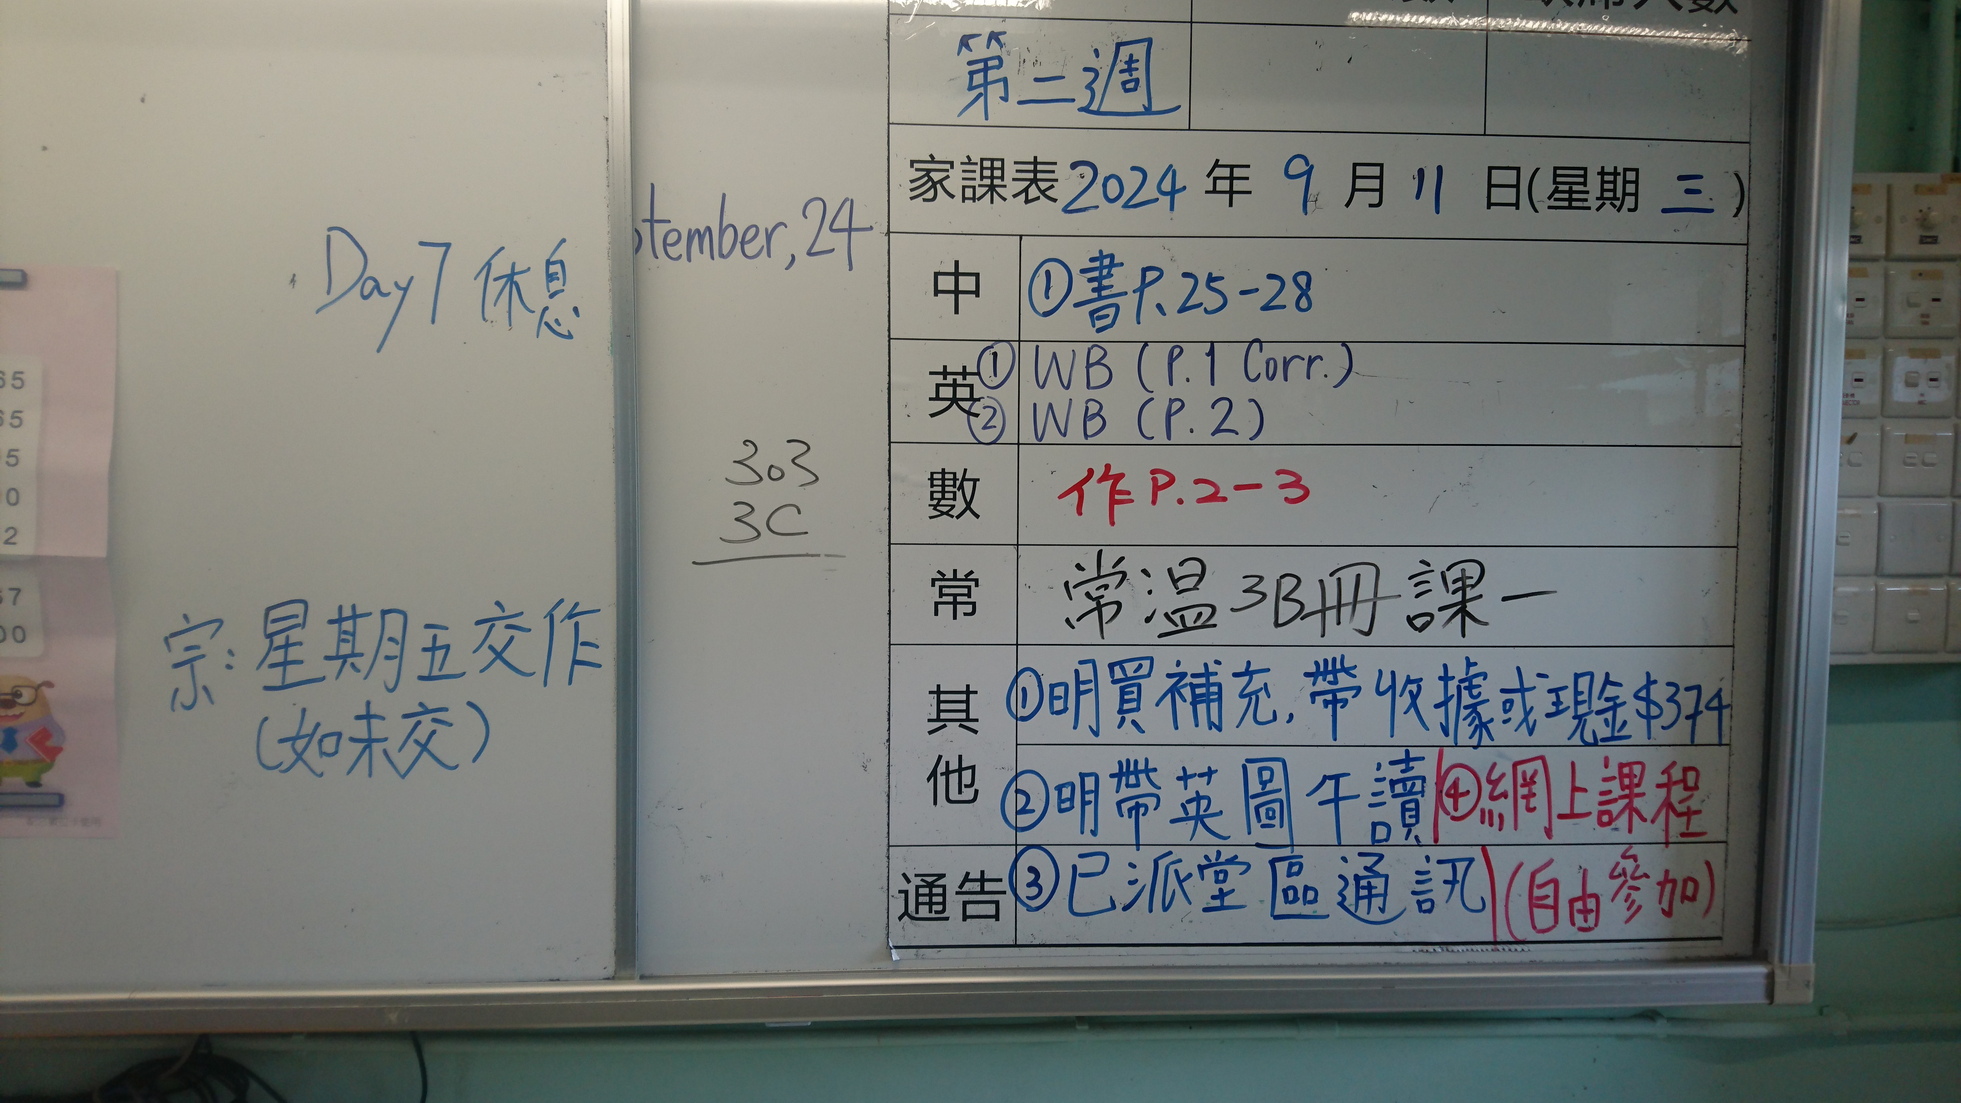 第二週
家課表 2024 年 9 月 11 日(星期 三)
中 ①書P.25-28
英 ① WB (P.1 Corr.)
② WB (P.2)
數 作P.2-3
常 常温3B冊課一
其他 ①明買補充,帶收據或現金$374
②明帶英圖午讀 ④網上課程
通告 ③已派堂區通訊 (自由參加)
tember,24
303
3C
Day7 休息
宗:星期五交作
(如未交)
65
65
5
0
2
57
00